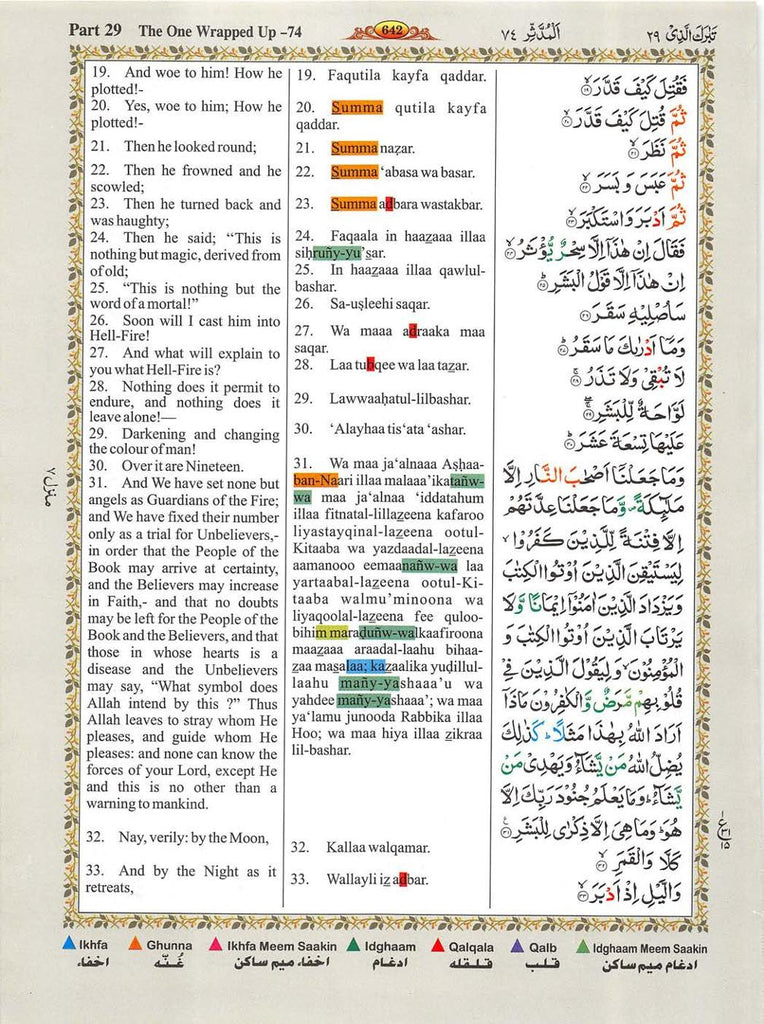 Part 29 The One Wrapped Up -74
642
اَلْمُدَّثِّر ٧٤
تَبٰرَكَ الَّذِىْ ٢٩
19. And woe to him! How he
plotted!-
20. Yes, woe to him; How he
plotted!-
21. Then he looked round;
22. Then he frowned and he
scowled;
23. Then he turned back and
was haughty;
24. Then he said; “This is
nothing but magic, derived from
of old;
25. “This is nothing but the
word of a mortal!”
26. Soon will I cast him into
Hell-Fire!
27. And what will explain to
you what Hell-Fire is?
28. Nothing does it permit to
endure, and nothing does it
leave alone!—
29. Darkening and changing
the colour of man!
30. Over it are Nineteen.
31. And We have set none but
angels as Guardians of the Fire;
and We have fixed their number
only as a trial for Unbelievers,-
in order that the People of the
Book may arrive at certainty,
and the Believers may increase
in Faith,- and that no doubts
may be left for the People of the
Book and the Believers, and that
those in whose hearts is a
disease and the Unbelievers
may say, “What symbol does
Allah intend by this ?” Thus
Allah leaves to stray whom He
pleases, and guide whom He
pleases: and none can know the
forces of your Lord, except He
and this is no other than a
warning to mankind.
32. Nay, verily: by the Moon,
33. And by the Night as it
retreats,
19. Faqutila kayfa qaddar.
20. Summa qutila kayfa
qaddar.
21. Summa nazar.
22. Summa ‘abasa wa basar.
23. Summa adbara wastakbar.
24. Faqaala in haazaaa illaa
siḥruñy-yu’sar.
25. In haazaaa illaa qawlul-
bashar.
26. Sa-uṣleehi saqar.
27. Wa maaa adraaka maa
saqar.
28. Laa tubqee wa laa tazar.
29. Lawwaaḥatul-lilbashar.
30. ‘Alayhaa tis‘ata ‘ashar.
31. Wa maa ja‘alnaaa Aṣḥaa-
ban-Naari illaa malaaa’ikatañw-
wa maa ja‘alnaa ‘iddatahum
illaa fitnatal-lillazeena kafaroo
liyastayqinal-lazeena ootul-
Kitaaba wa yazdaadal-lazeena
aamanooo eemaanañw-wa laa
yartaabal-lazeena ootul-Ki-
taaba walmu’minoona wa
liyaqoolal-lazeena fee quloo-
bihim maraḍuñw-walkaafiroona
maazaaa araadal-laahu bihaa-
zaa masalaa; kazaalika yuḍillul-
laahu mañy-yashaaa’u wa
yahdee mañy-yashaaa’; wa maa
ya‘lamu junooda Rabbika illaa
Hoo; wa maa hiya illaa zikraa
lil-bashar.
32. Kallaa walqamar.
33. Wallayli iz adbar.
فَقُتِلَ كَيْفَ قَدَّرَ ۙ‏﴿۱۹﴾
ثُمَّ قُتِلَ كَيْفَ قَدَّرَ ۙ‏﴿۲۰﴾
ثُمَّ نَظَرَ ۙ‏﴿۲۱﴾
ثُمَّ عَبَسَ وَ بَسَرَ ۙ‏﴿۲۲﴾
ثُمَّ اَدْبَرَ وَاسْتَكْبَرَ ۙ‏﴿۲۳﴾
فَقَالَ اِنْ هٰذَاۤ اِلَّا سِحْرٌ يُّؤْثَرُ ۙ‏﴿۲۴﴾
اِنْ هٰذَاۤ اِلَّا قَوْلُ الْبَشَرِؕ‏﴿۲۵﴾
سَاُصْلِيْهِ سَقَرَ‏﴿۲۶﴾
وَمَاۤ اَدْرٰىكَ مَا سَقَرُؕ‏﴿۲۷﴾
لَا تُبْقِىْ وَلَا تَذَرُۚ‏﴿۲۸﴾
لَوَّاحَةٌ لِّلْبَشَرِۚ ۖ‏﴿۲۹﴾
عَلَيْهَا تِسْعَةَ عَشَرَؕ‏﴿۳۰﴾
وَمَا جَعَلْنَاۤ اَصْحٰبَ النَّارِ اِلَّا
مَلٰٓٮِٕكَةً ۖ وَّمَا جَعَلْنَا عِدَّتَهُمْ
اِلَّا فِتْنَةً لِّلَّذِيْنَ كَفَرُوْا ۙ
لِيَسْتَيْقِنَ الَّذِيْنَ اُوْتُوا الْكِتٰبَ
وَيَزْدَادَ الَّذِيْنَ اٰمَنُوْۤا اِيْمَانًا وَّلَا
يَرْتَابَ الَّذِيْنَ اُوْتُوا الْكِتٰبَ وَ
الْمُؤْمِنُوْنَ ۙ وَلِيَقُوْلَ الَّذِيْنَ فِىْ
قُلُوْبِهِمْ مَّرَضٌ وَّالْكٰفِرُوْنَ مَاذَاۤ
اَرَادَ اللّٰهُ بِهٰذَا مَثَلًا ؕ كَذٰلِكَ
يُضِلُّ اللّٰهُ مَنْ يَّشَآءُ وَيَهْدِىْ مَنْ
يَّشَآءُ ؕ وَمَا يَعْلَمُ جُنُوْدَ رَبِّكَ اِلَّا
هُوَ ؕ وَمَا هِىَ اِلَّا ذِكْرٰى لِلْبَشَرِ‏﴿۳۱﴾
كَلَّا وَالْقَمَرِۙ‏﴿۳۲﴾
وَالَّيْلِ اِذْ اَدْبَرَۙ‏﴿۳۳﴾
منزل ٧
Ikhfa Ghunna Ikhfa Meem Saakin Idghaam Qalqala Qalb Idghaam Meem Saakin
اخفاء غُنّه اخفاء ميم ساكن ادغام قلقله قلب ادغام ميم ساكن